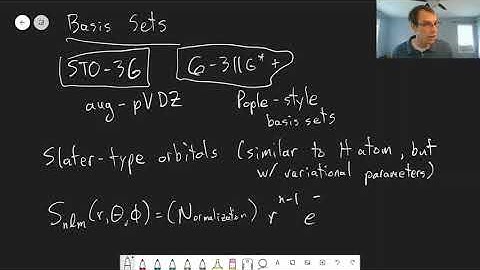 Basis Sets
STO-3G 6-311G*+
aug-pVDZ Pople-style
basis sets
Slater-type orbitals (similar to H atom, but
w/ variational parameters)
Sₙₗₘ(r,θ,ϕ) = (Normalization) rⁿ⁻¹ e⁻